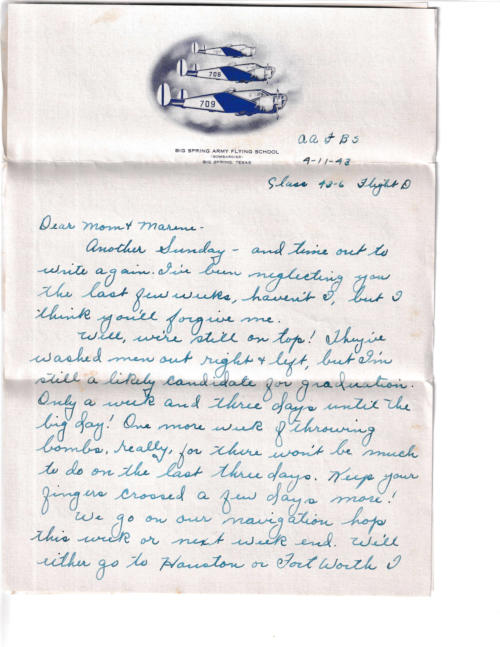 708
709
BIG SPRING ARMY FLYING SCHOOL
(BOMBARDIER)
BIG SPRING, TEXAS
AAFBS
4-11-43
Class 43-6 Flight D
Dear Mom & Marene-
Another Sunday - and time out to
write again. I've been neglecting you
the last few weeks, haven't I, but I
think you'll forgive me.
Well, we're still on top! They've
washed men out right & left, but I'm
still a likely candidate for graduation.
Only a week and three days until the
big day! One more week of throwing
bombs, really, for there won't be much
to do on the last three days. Keep your
fingers crossed a few days more!
We go on our navigation hop
this week or next week end. We'll
either go to Houston or Fort Worth I